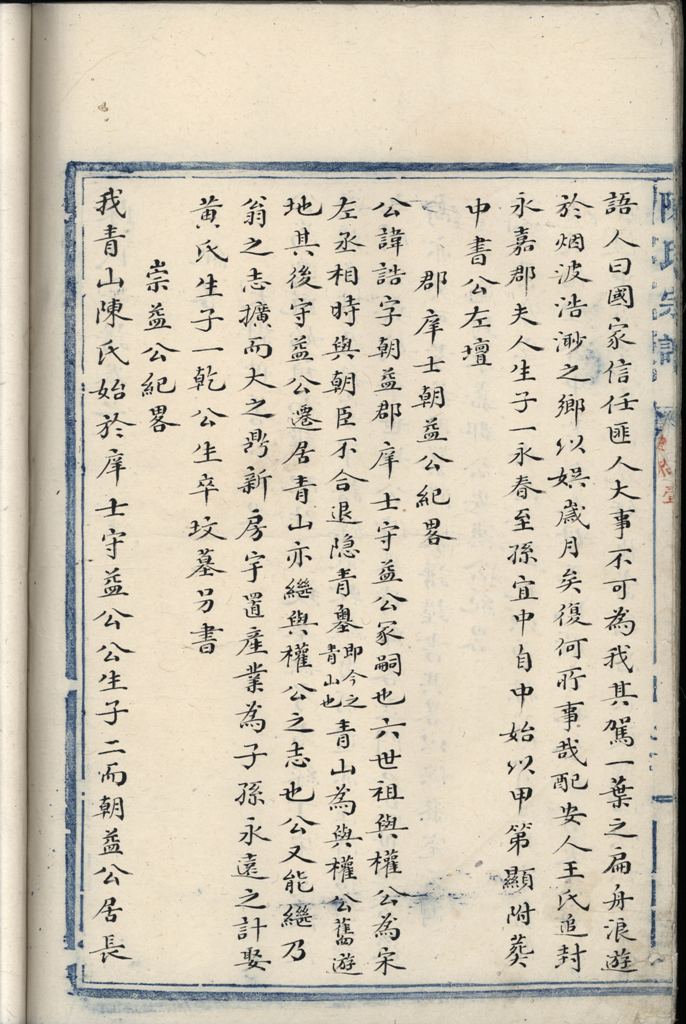 陳氏宗譜
語人曰國家信任匪人大事不可為我其駕一葉之扁舟浪遊
於烟波浩渺之鄉以娯歲月矣復何所事哉配安人王氏追封
永嘉郡夫人生子一永春至孫宜中自中始以甲第顯附葬
中書公左壇
郡庠士朝益公紀畧
公諱誥字朝益郡庠士守益公冢嗣也六世祖與權公為宋
左丞相時與朝臣不合退隐青墨即今之青山也青山為與權公舊遊
地其後守益公遷居青山亦繼與權公之志也公又能繼乃
翁之志擴而大之鼎新房宇置產業為子孫永遠之計娶
黃氏生子一乾公生卒坟墓另書
崇益公紀畧
我青山陳氏始於庠士守益公公生子二而朝益公居長